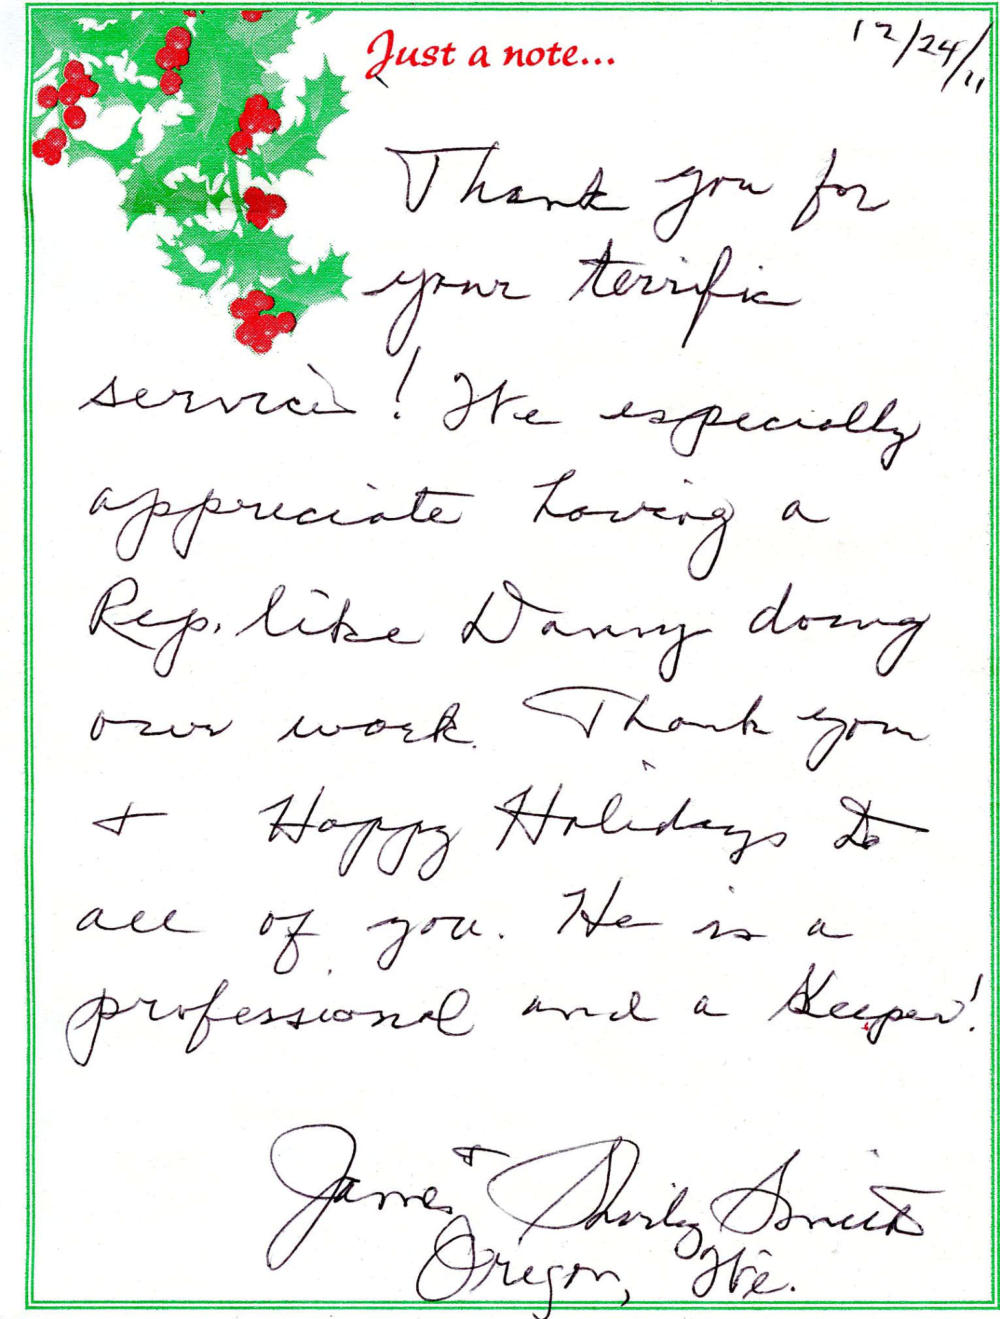 Just a note...
12/24/11
Thank you for
your terrific
service! We especially
appreciate having a
Rep. like Danny doing
our work. Thank you
+ Happy Holidays to
all of you. He is a
professional and a Keeper!
James + Shirley Smith
Oregon, Wi.